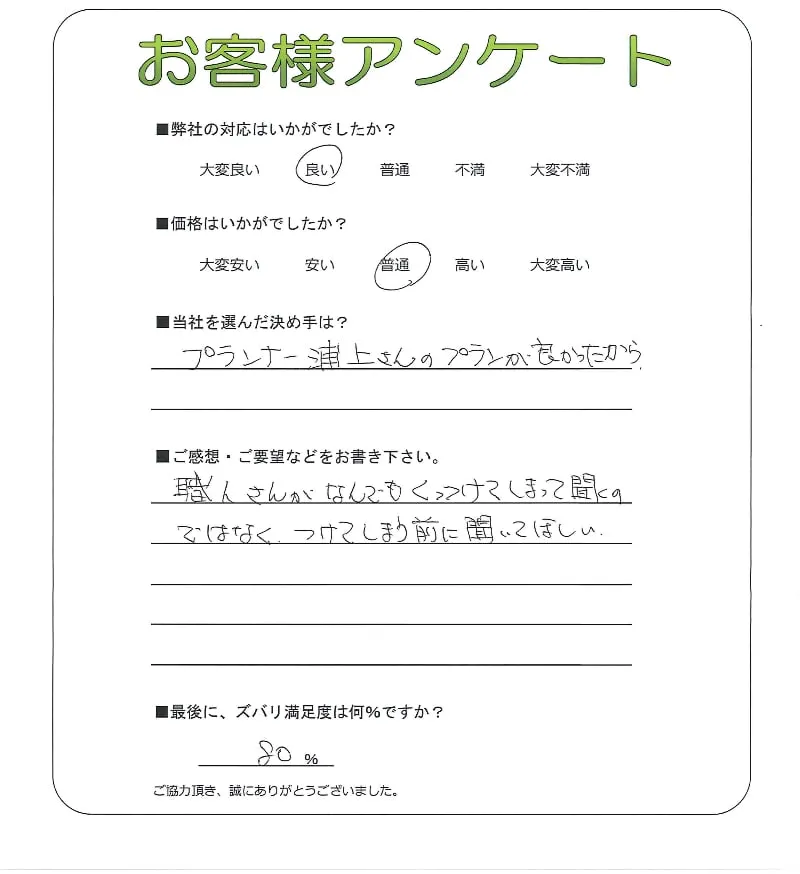 お客様アンケート
■弊社の対応はいかがでしたか？
大変良い 良い 普通 不満 大変不満
■価格はいかがでしたか？
大変安い 安い 普通 高い 大変高い
■当社を選んだ決め手は？
プランナー浦上さんのプランが良かったから
■ご感想・ご要望などをお書き下さい。
職人さんがなんでもくっつけてしまって聞くの
ではなく、つけてしまう前に聞いてほしい。
■最後に、ズバリ満足度は何%ですか？
80 %
ご協力頂き、誠にありがとうございました。